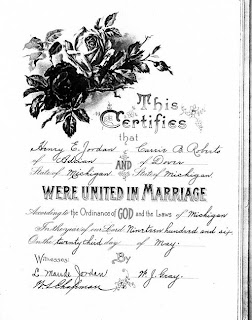 This
Certifies
that
Henry E. Jordan & Carrie B. Roberts
of of Dover
AND
State of Michigan State of Michigan
WERE UNITED IN MARRIAGE
According to the Ordinance of GOD and the Laws of Michigan
In the year of our Lord Nineteen hundred and six
On the twenty third day of May.
Witnesses: By
L. Maude Jordan W. J. Gray.
Chapman